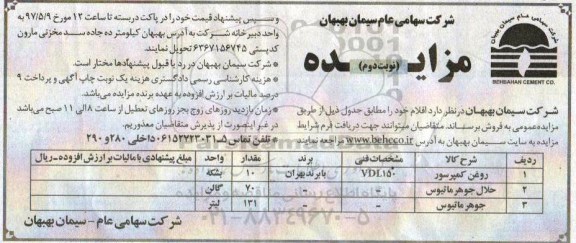 شرکت سهامی عام سیمان بهبهان
مزایـــده
(نوبت دوم)
BEHBAHAN CEMENT CO.
شرکت سیمان بهبهـان در نظر دارد اقلام خود را مطابق جدول ذیل از طریق
مزایده عمومی به فروش برسـاند. متقاضیان میتوانند جهت دریافت فرم شرایط
مزایده به سایت سیـمان بهبهان به آدرس www.behcco.ir مراجعه نمایند
و سـپس پیشنهاد قیمت خود را در پاکت دربسته تا ساعت ۱۲ مورخ ۹۷/۵/۹ به
واحد دبیرخانه شـرکت به آدرس بهبهان کیلومتر ده جاده سـد مخزنی مارون
کد پستی ۶۳۶۷۱۵۶۷۴۵ تحویل نمایند.
* شرکت سیمان بهبهان در رد یا قبول پیشنهادها مختار است.
* هزینه کارشناسی رسمی دادگستری هزینه یک نوبت چاپ آگهی و پرداخت ۹
درصد مالیات بر ارزش افزوده به عهده برنده مزایده می‌باشد.
* زمان بازدید روزهای زوج بجز روزهای تعطیل از ساعت ۸ الی ۱۱ صبح می‌باشد
در غیر اینصورت از پذیرش متقاضیان معذوریم.
* تلفن تماس ۵-۰۶۱۵۲۷۲۳۰۲۱ داخلی ۲۸۰ و ۲۹۰
ردیف شرح کالا مشخصات فنی برند مقدار واحد مبلغ پیشنهادی با مالیات بر ارزش افزوده-ریال
۱ روغن کمپرسور VDL150 با برند بهران ۱۰ بشکه
۲ حلال جوهر ماتیوس - - ۷۰ گالن
۳ جوهر ماتیوس - - ۱۳۱ لیتر
شرکت سهامی عام - سیمان بهبهان
۰۲۱-۸۸۳۴۹۶۷۰-۵